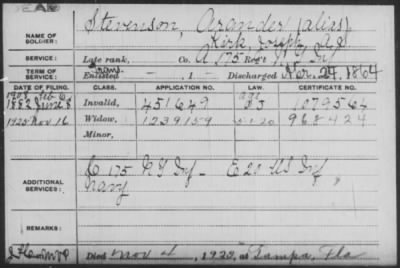 DEAD
NAME OF SOLDIER: Stevenson, Arander (alias)
Kirk, Joseph A.J.
SERVICE: Late rank, Co. A 175 Reg't N.Y. Inf
TERM OF SERVICE: Enlisted , 1 Discharged Nov. 29, 1864
DATE OF FILING. CLASS. APPLICATION NO. LAW. CERTIFICATE NO.
1908 Feb 6
1882 June 8 Invalid, 451649 1079564
1920 Nov 16 Widow, 1239159 5-1-20 968424
Minor,
ADDITIONAL SERVICES: C 175 N.Y. Inf - E 20 US Inf
Navy
REMARKS:
Died Nov 4, 1920, at Tampa, Fla